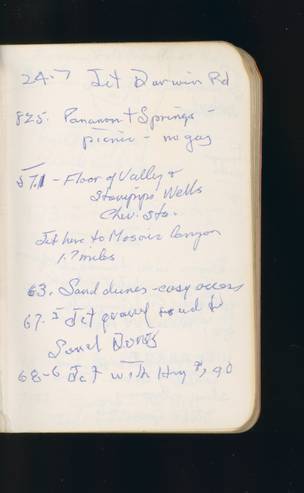 24.7 Jct Darwin Rd
825. Panamint Springs -
picnic - no gas
57.1 - Floor of Valley &
Stovepipe Wells
Chev. Sta.
Jct here to Mosaic Canyon
1.7 miles
63. Sand dunes - easy access
67.2 Jct gravel road to
Sand Dunes
68-6 Jct with Hwy 190